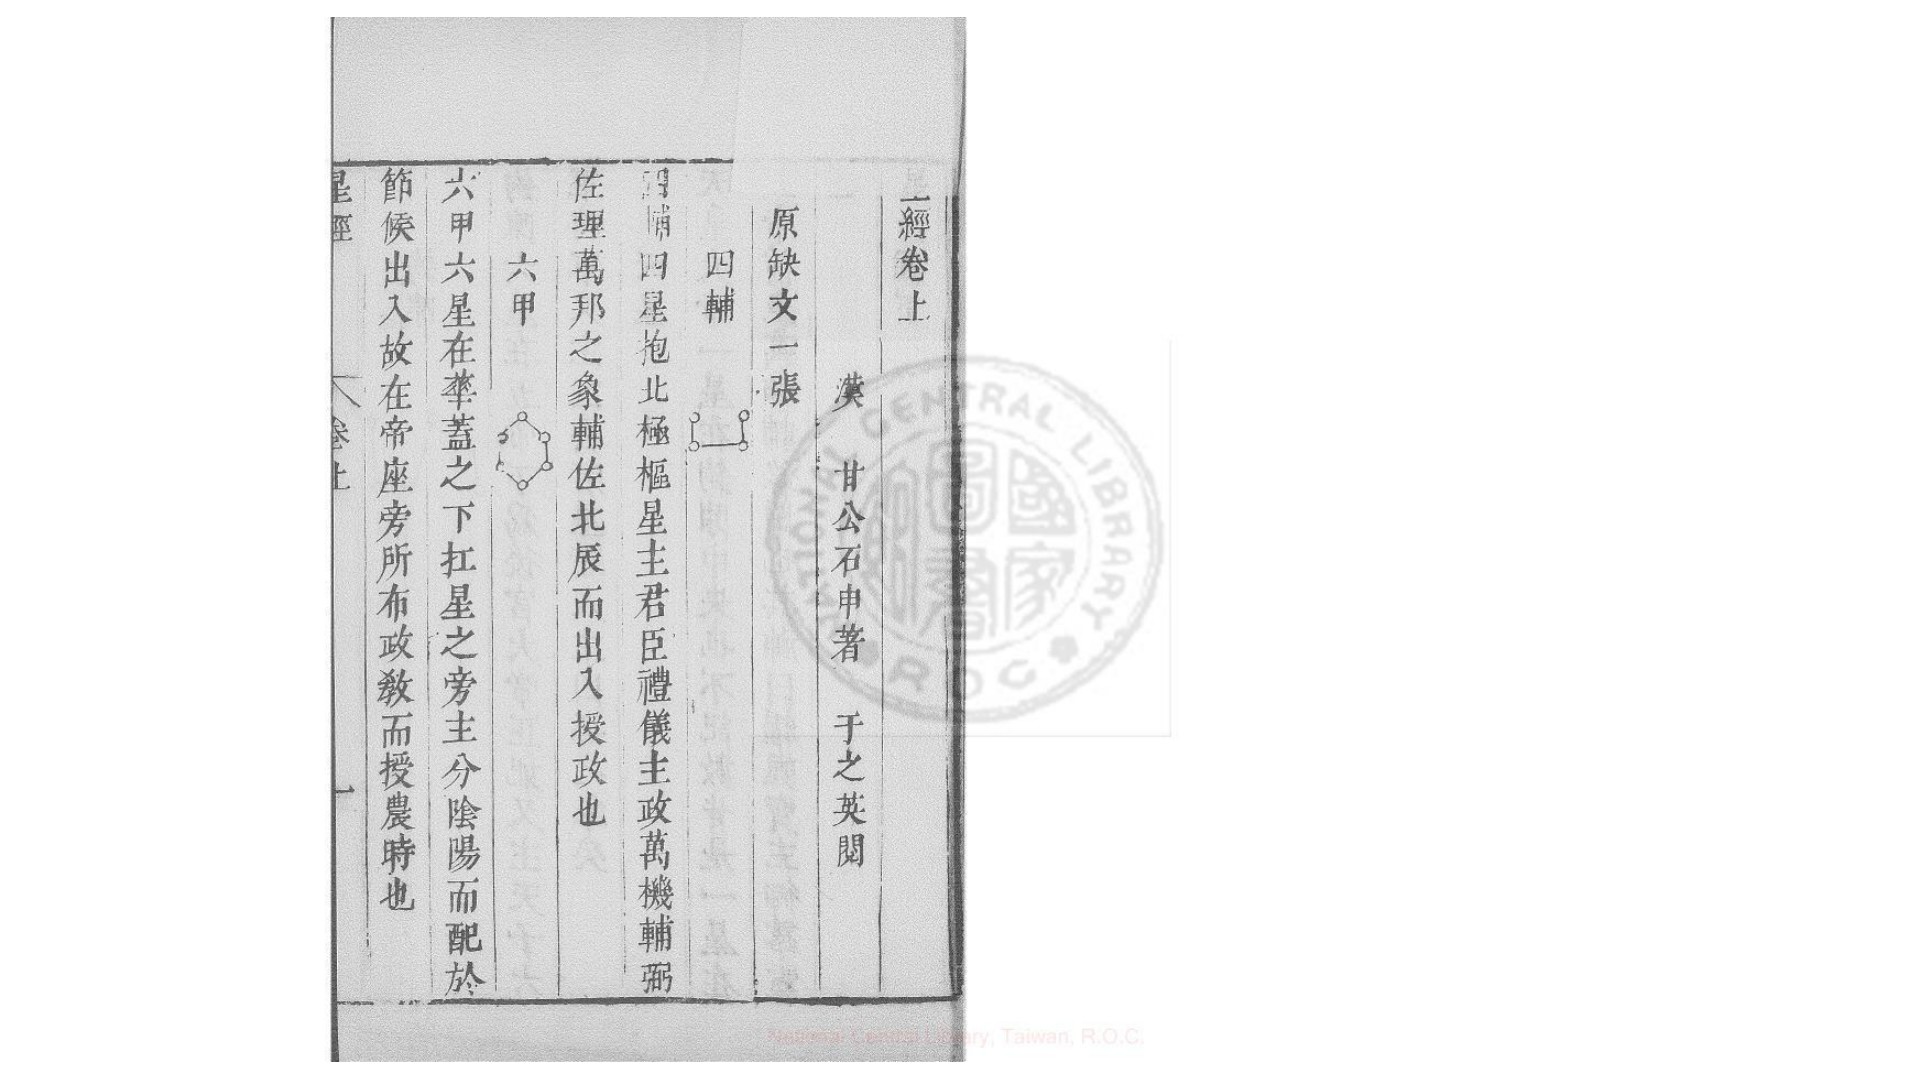 星經卷上
漢 甘公石申著 于之英閱
原缺文一張
四輔
四輔四星抱北極樞星主君臣禮儀主政萬機輔弼
佐理萬邦之象輔佐北辰而出入授政也
六甲
六甲六星在華蓋之下扛星之旁主分陰陽而配於
節候出入故在帝座旁所布政教而授農時也
星經 卷上 一
NATIONAL CENTRAL LIBRARY
R.O.C
國家圖書館
National Central Library, Taiwan, R.O.C.